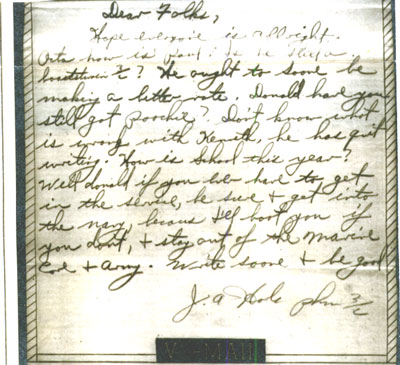 Dear Folks,
Hope everyone is allright.
now is is he
? He ought to soone be
making a better rate. Donald have you
still got poochie? Don't know what
is wrong with Kenith, he has quit
writing. How is School this year?
Well donald if you ever have to get
in the servise, be sure & get into
the navy, becaus I'll boot you if
you dont, & stay out of the Marine
Core & Army. Write soone & be good
J. A. Hole phm 2/c
V-MAIL